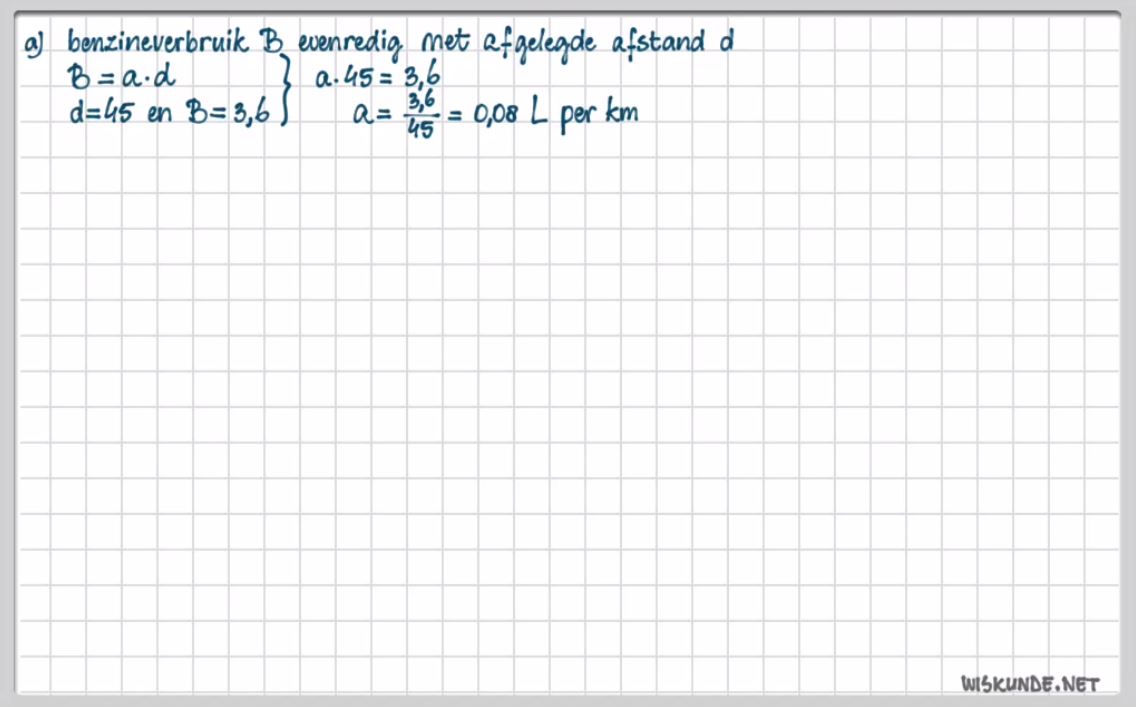 a) benzineverbruik B evenredig met afgelegde afstand d
B = a·d } a·45 = 3,6
d=45 en B=3,6 } a = 3,6/45 = 0,08 L per km
WISKUNDE.NET